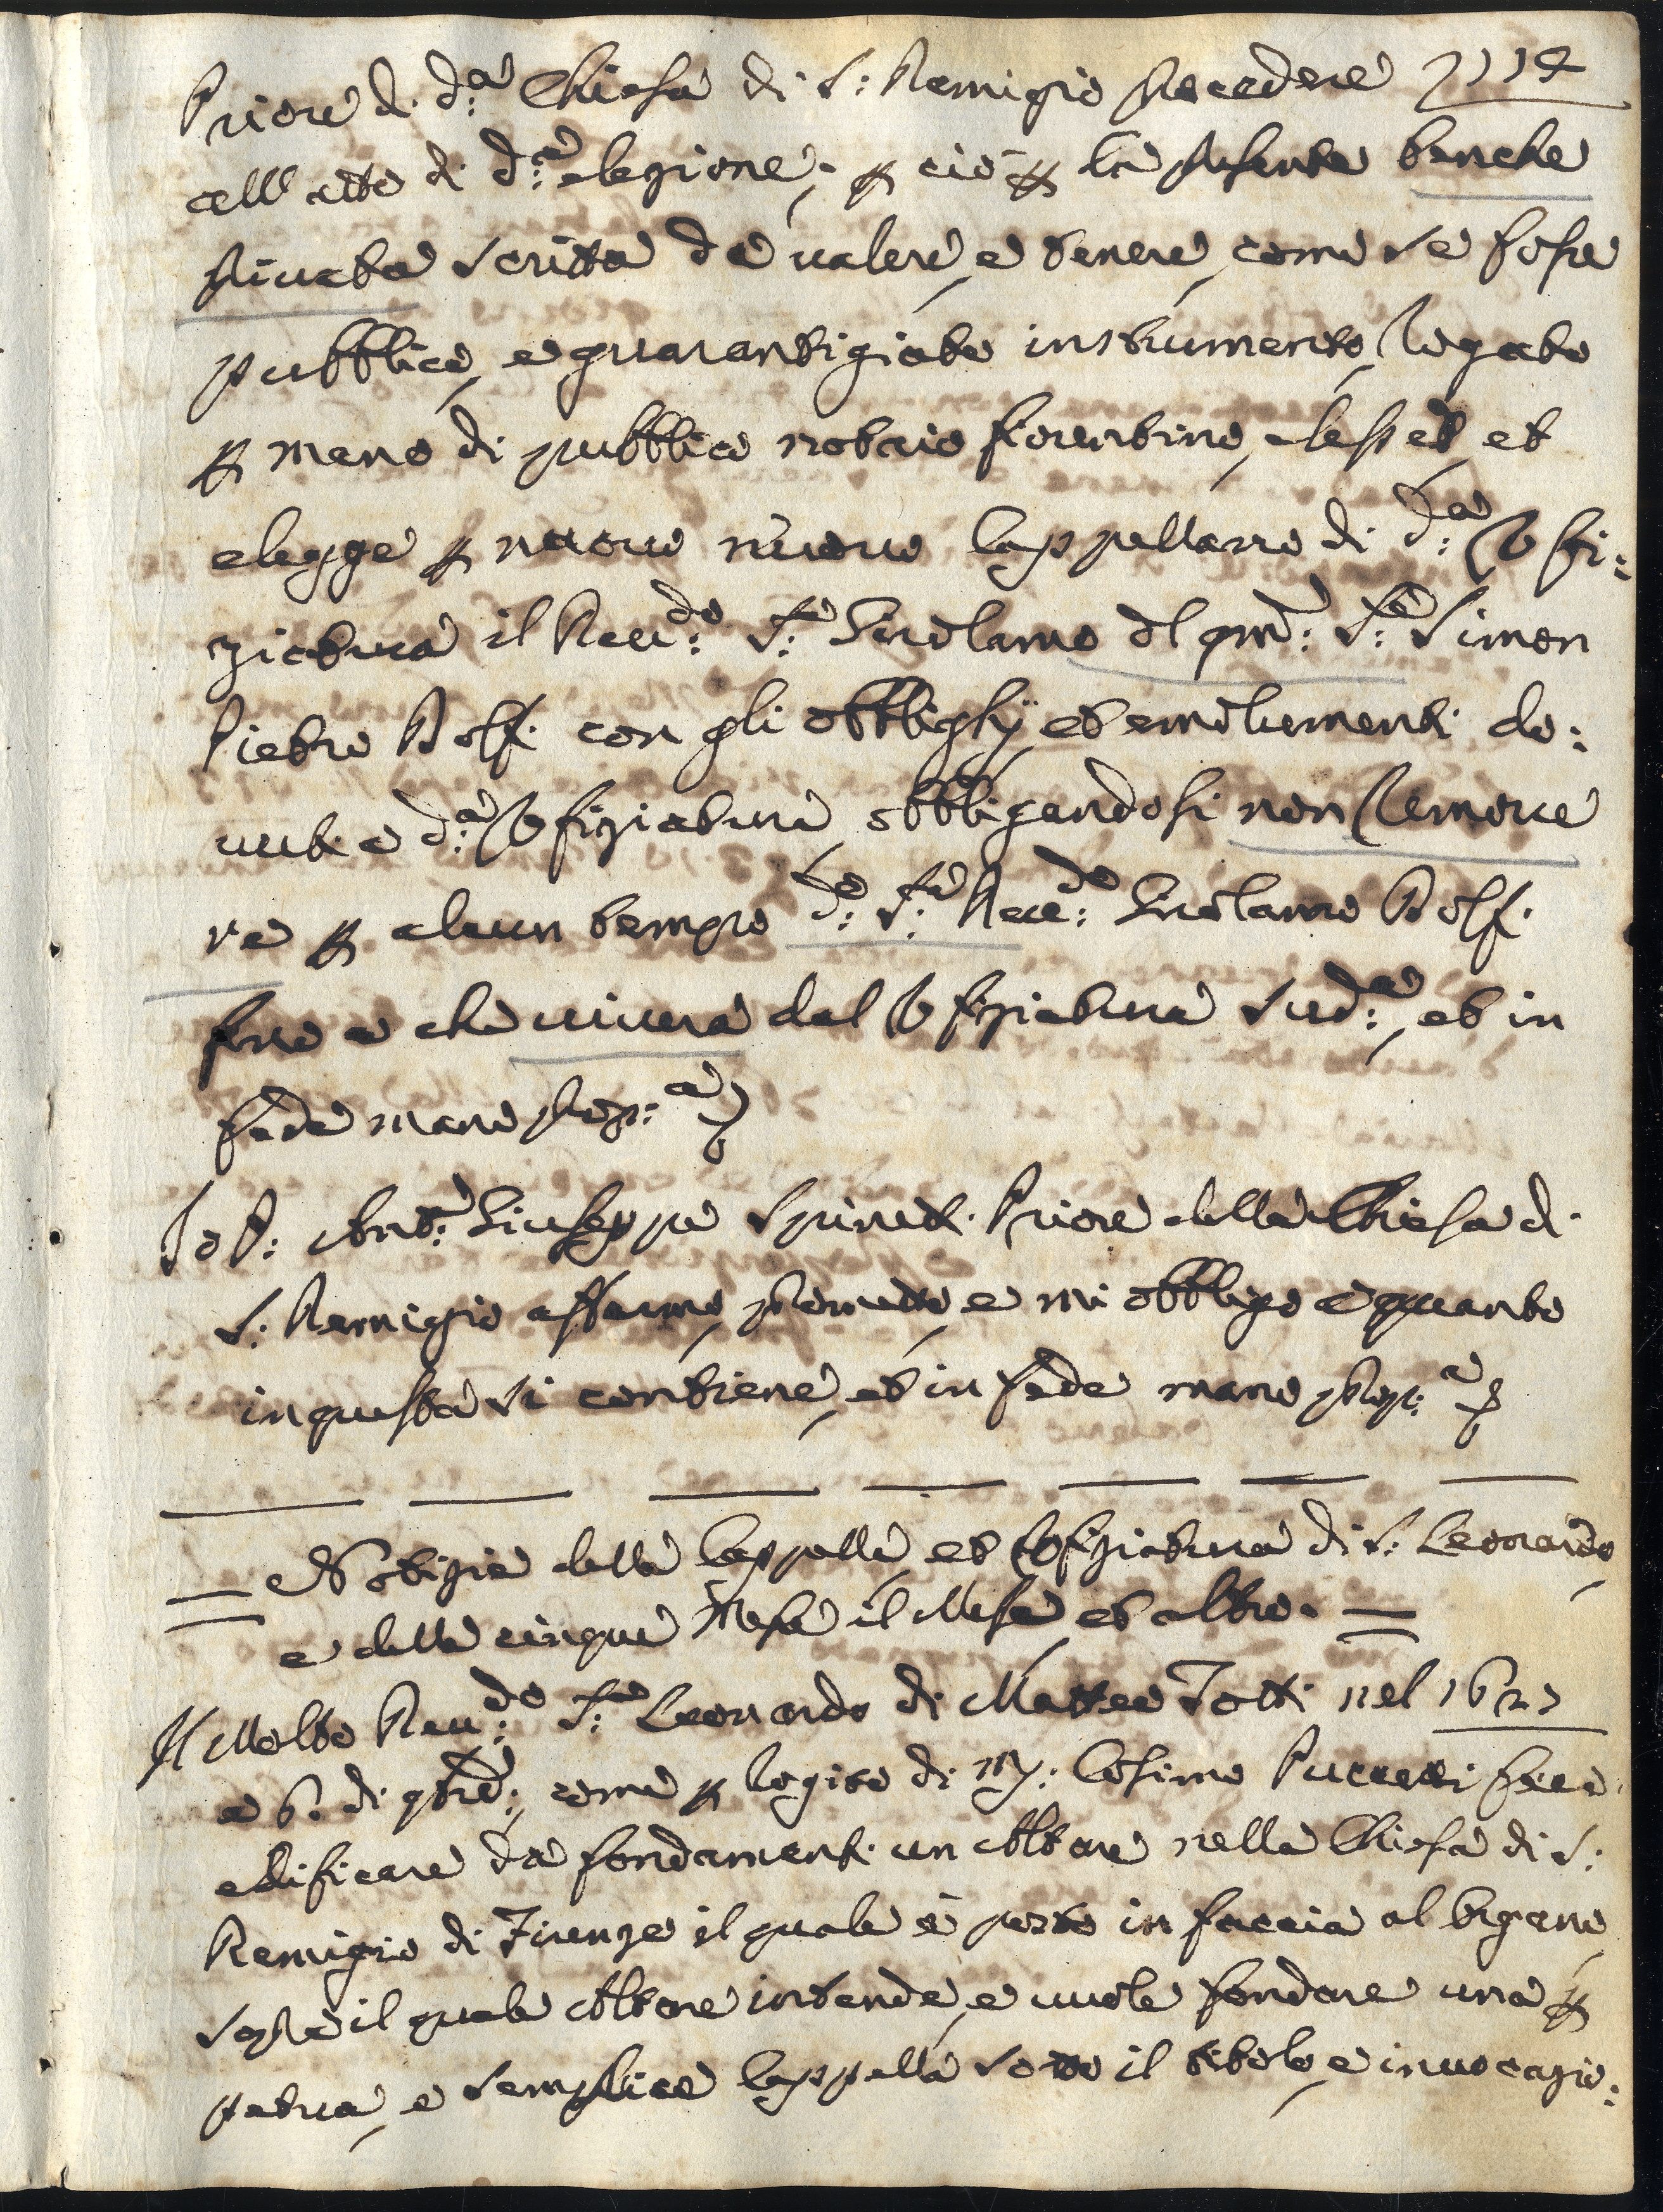 Priore di d:ª Chiesa di S: Remigio procedere
all'atto di d:ª elezione; p ciò p la presente benche
privata scritta da valere, e tenere, come se fosse
pubblico, e guarantigiato instrumento, rogato
p mano di pubblico notaio fiorentino, elesse, et
elegge p nuovo Cappellano di d:ª Vfi:
ziatura il Reu:do S:re Girolamo del qm: S:re Simon
Pietro Dolfi con gli obblighj, et emolumenti do:
vuti a d:ª Vfiziatura, obbligandosi non rimove
re p alcun tempo d:º S:re Reu:do Girolamo Dolfi
fino a che viverà dal Vfiziatura sud:ª, et in
fede mano prop:ª
Io P: Ant:º Giuseppe Spineti Priore della Chiesa di
S: Remigio affermo, prometto, e mi obbligo a quanto
in questa si contiene, et in fede mano prop:ª
= Notizie della Cappella, et Vfiziatura di S: Leonardo,
e delle cinque Messe il Mese, et altro. =
Il Molto Reu:do S:re Leonardo di Matteo Totti nel 1627
a 6. di come p rogito di Cosimo Puccetti fece
edificare da fondamenti un Altare nella Chiesa di S:
Remigio di Firenze il quale è posto in faccia al Organo,
sopra il quale Altare intende, e vuole fondare una p
petua, e semplice Cappella sotto il titolo, e invocazio: